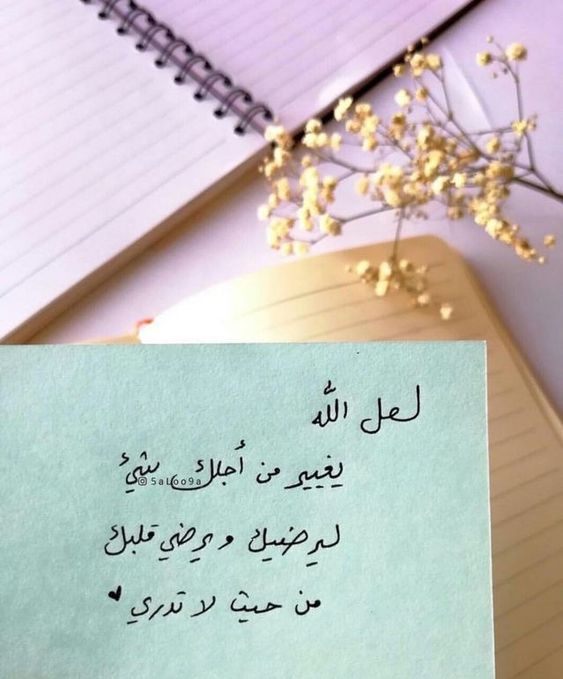 لعل الله
يغيير من أجلك شيئ
@5aLoo9a
ليرضيك ويرضي قلبك
من حيث لا تدري ♥